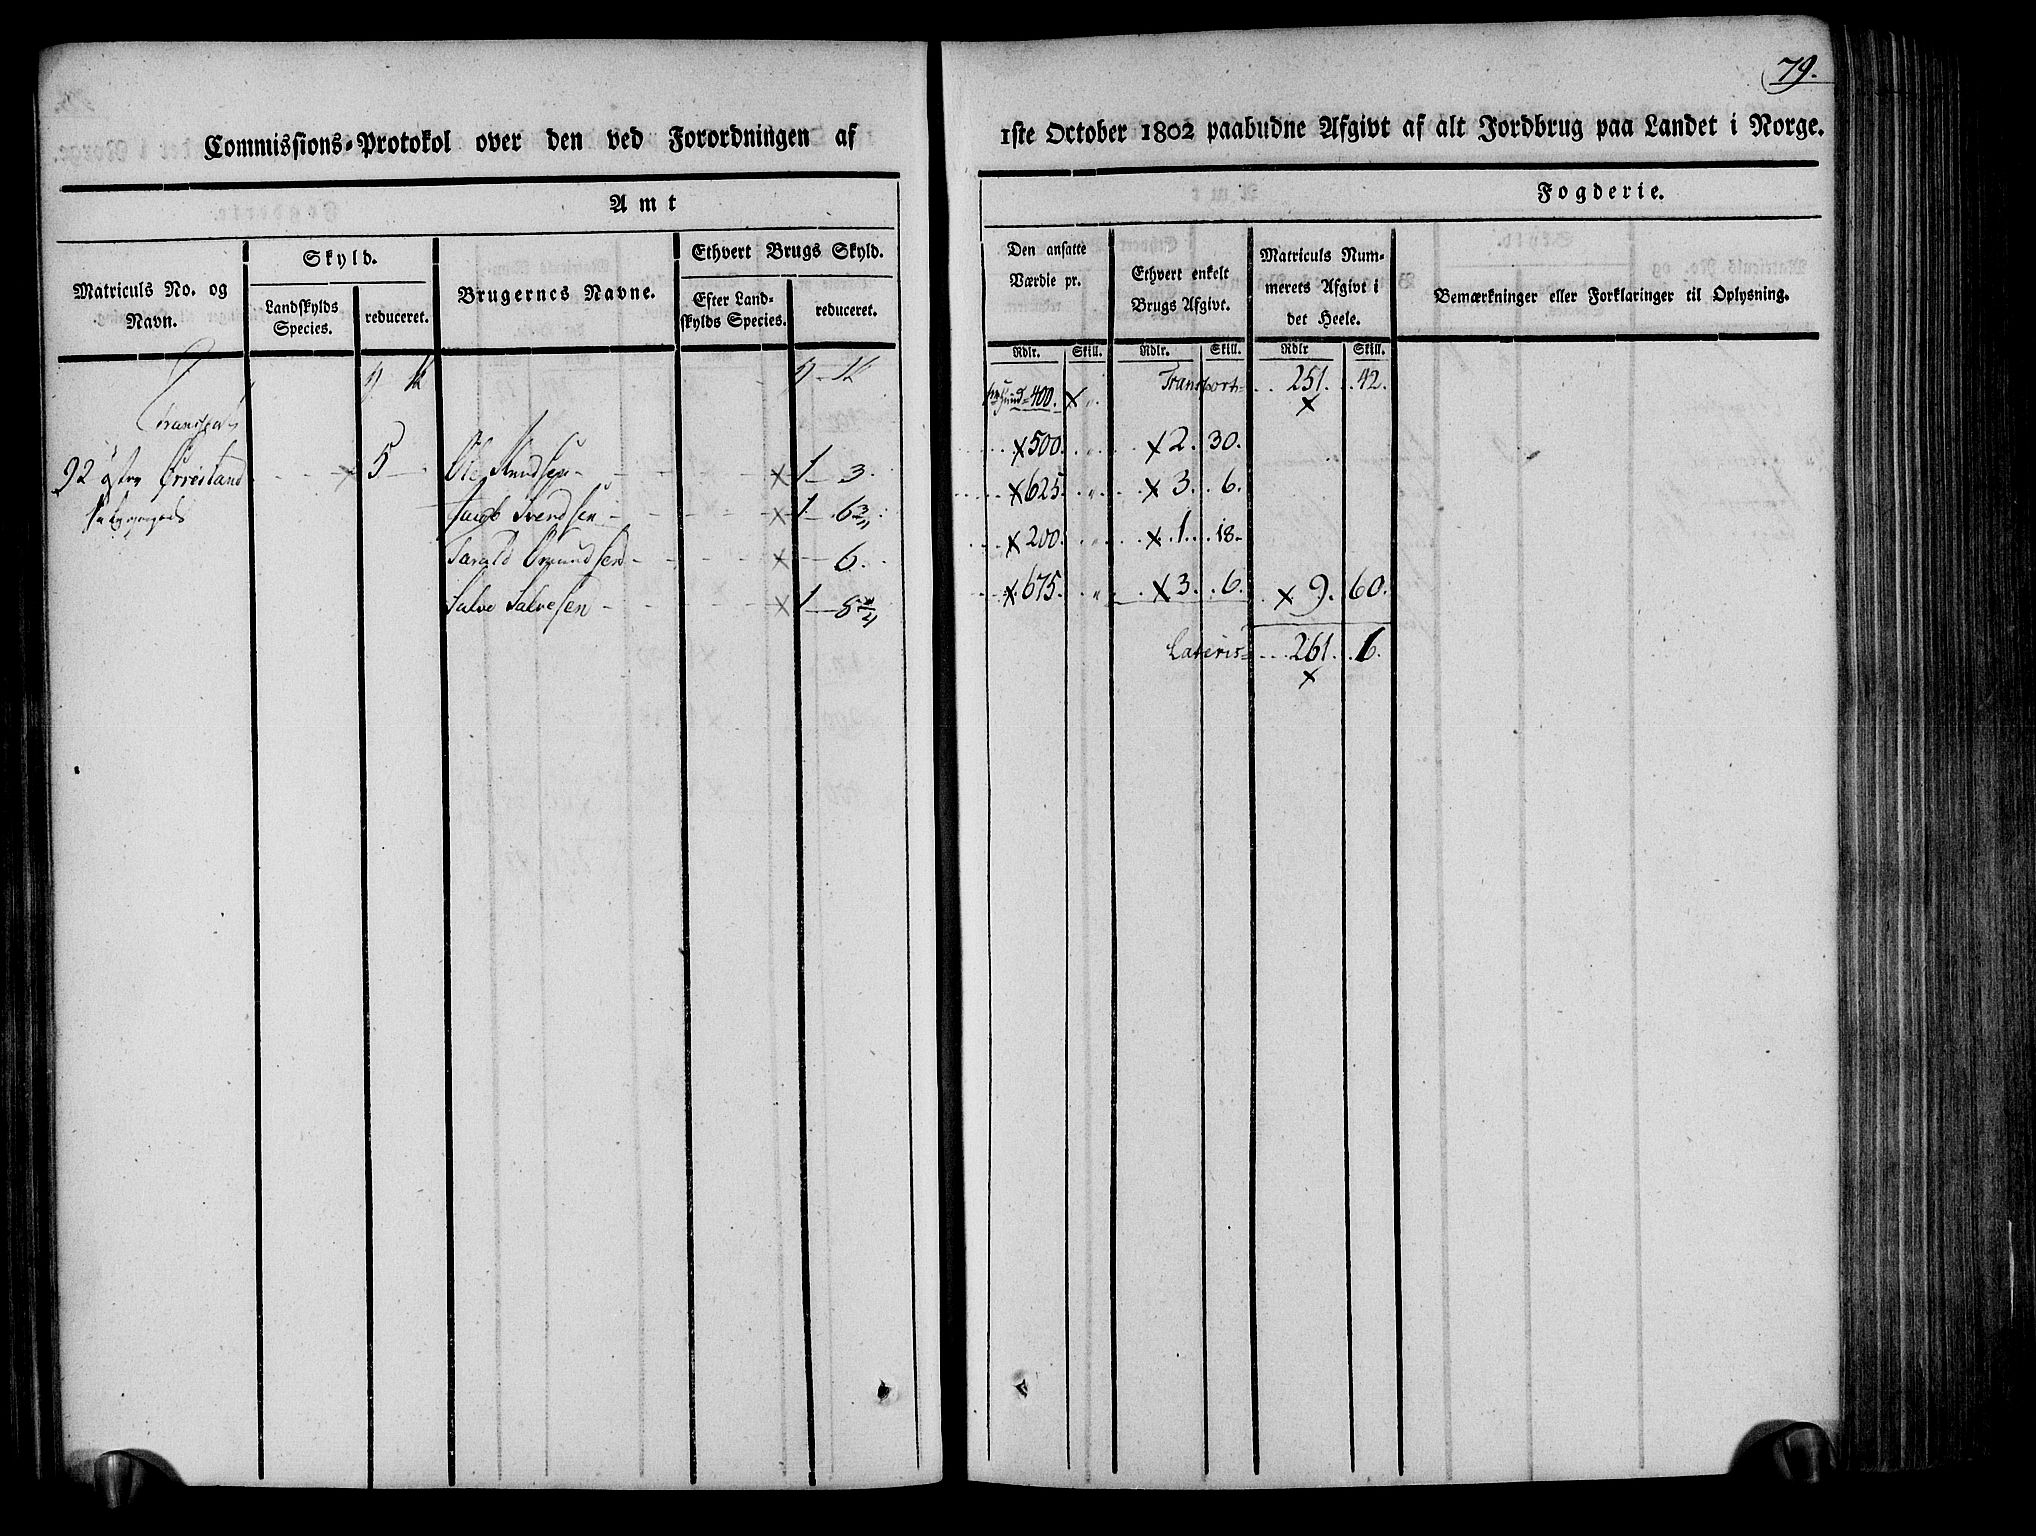 79.
Commissions-Protokol over den ved Forordningen af 1ste October 1802 paabudne Afgivt af alt Jordbrug paa Landet i Norge.
Amt Fogderie.
Matriculs No. og Navn.
Skyld.
Landskylds Species.
reduceret.
Brugernes Navne.
Ethvert Brugs Skyld.
Efter Landskylds Species.
reduceret.
Den ansatte Værdie pr.
Ethvert enkelt Brugs Afgivt.
Matriculs Nummerets Afgivt i det Heele.
Bemærkninger eller Forklaringer til Oplysning.
Rdlr. Skill. Rdlr. Skill. Rdlr Skill.
Transport 9 9 400. x Transport 251. 42.
x
92 x 5 Ole Knudsen x 1 3. x 500. x 2. 30.
Jacob Svendsen x 1 6 x 625. x 3. 6.
Tarald x 6. x 200. x 1. 18.
Salve Salvesen x 1 x 675. x 3. 6. x 9. 60.
Lateris 261. 6.
x